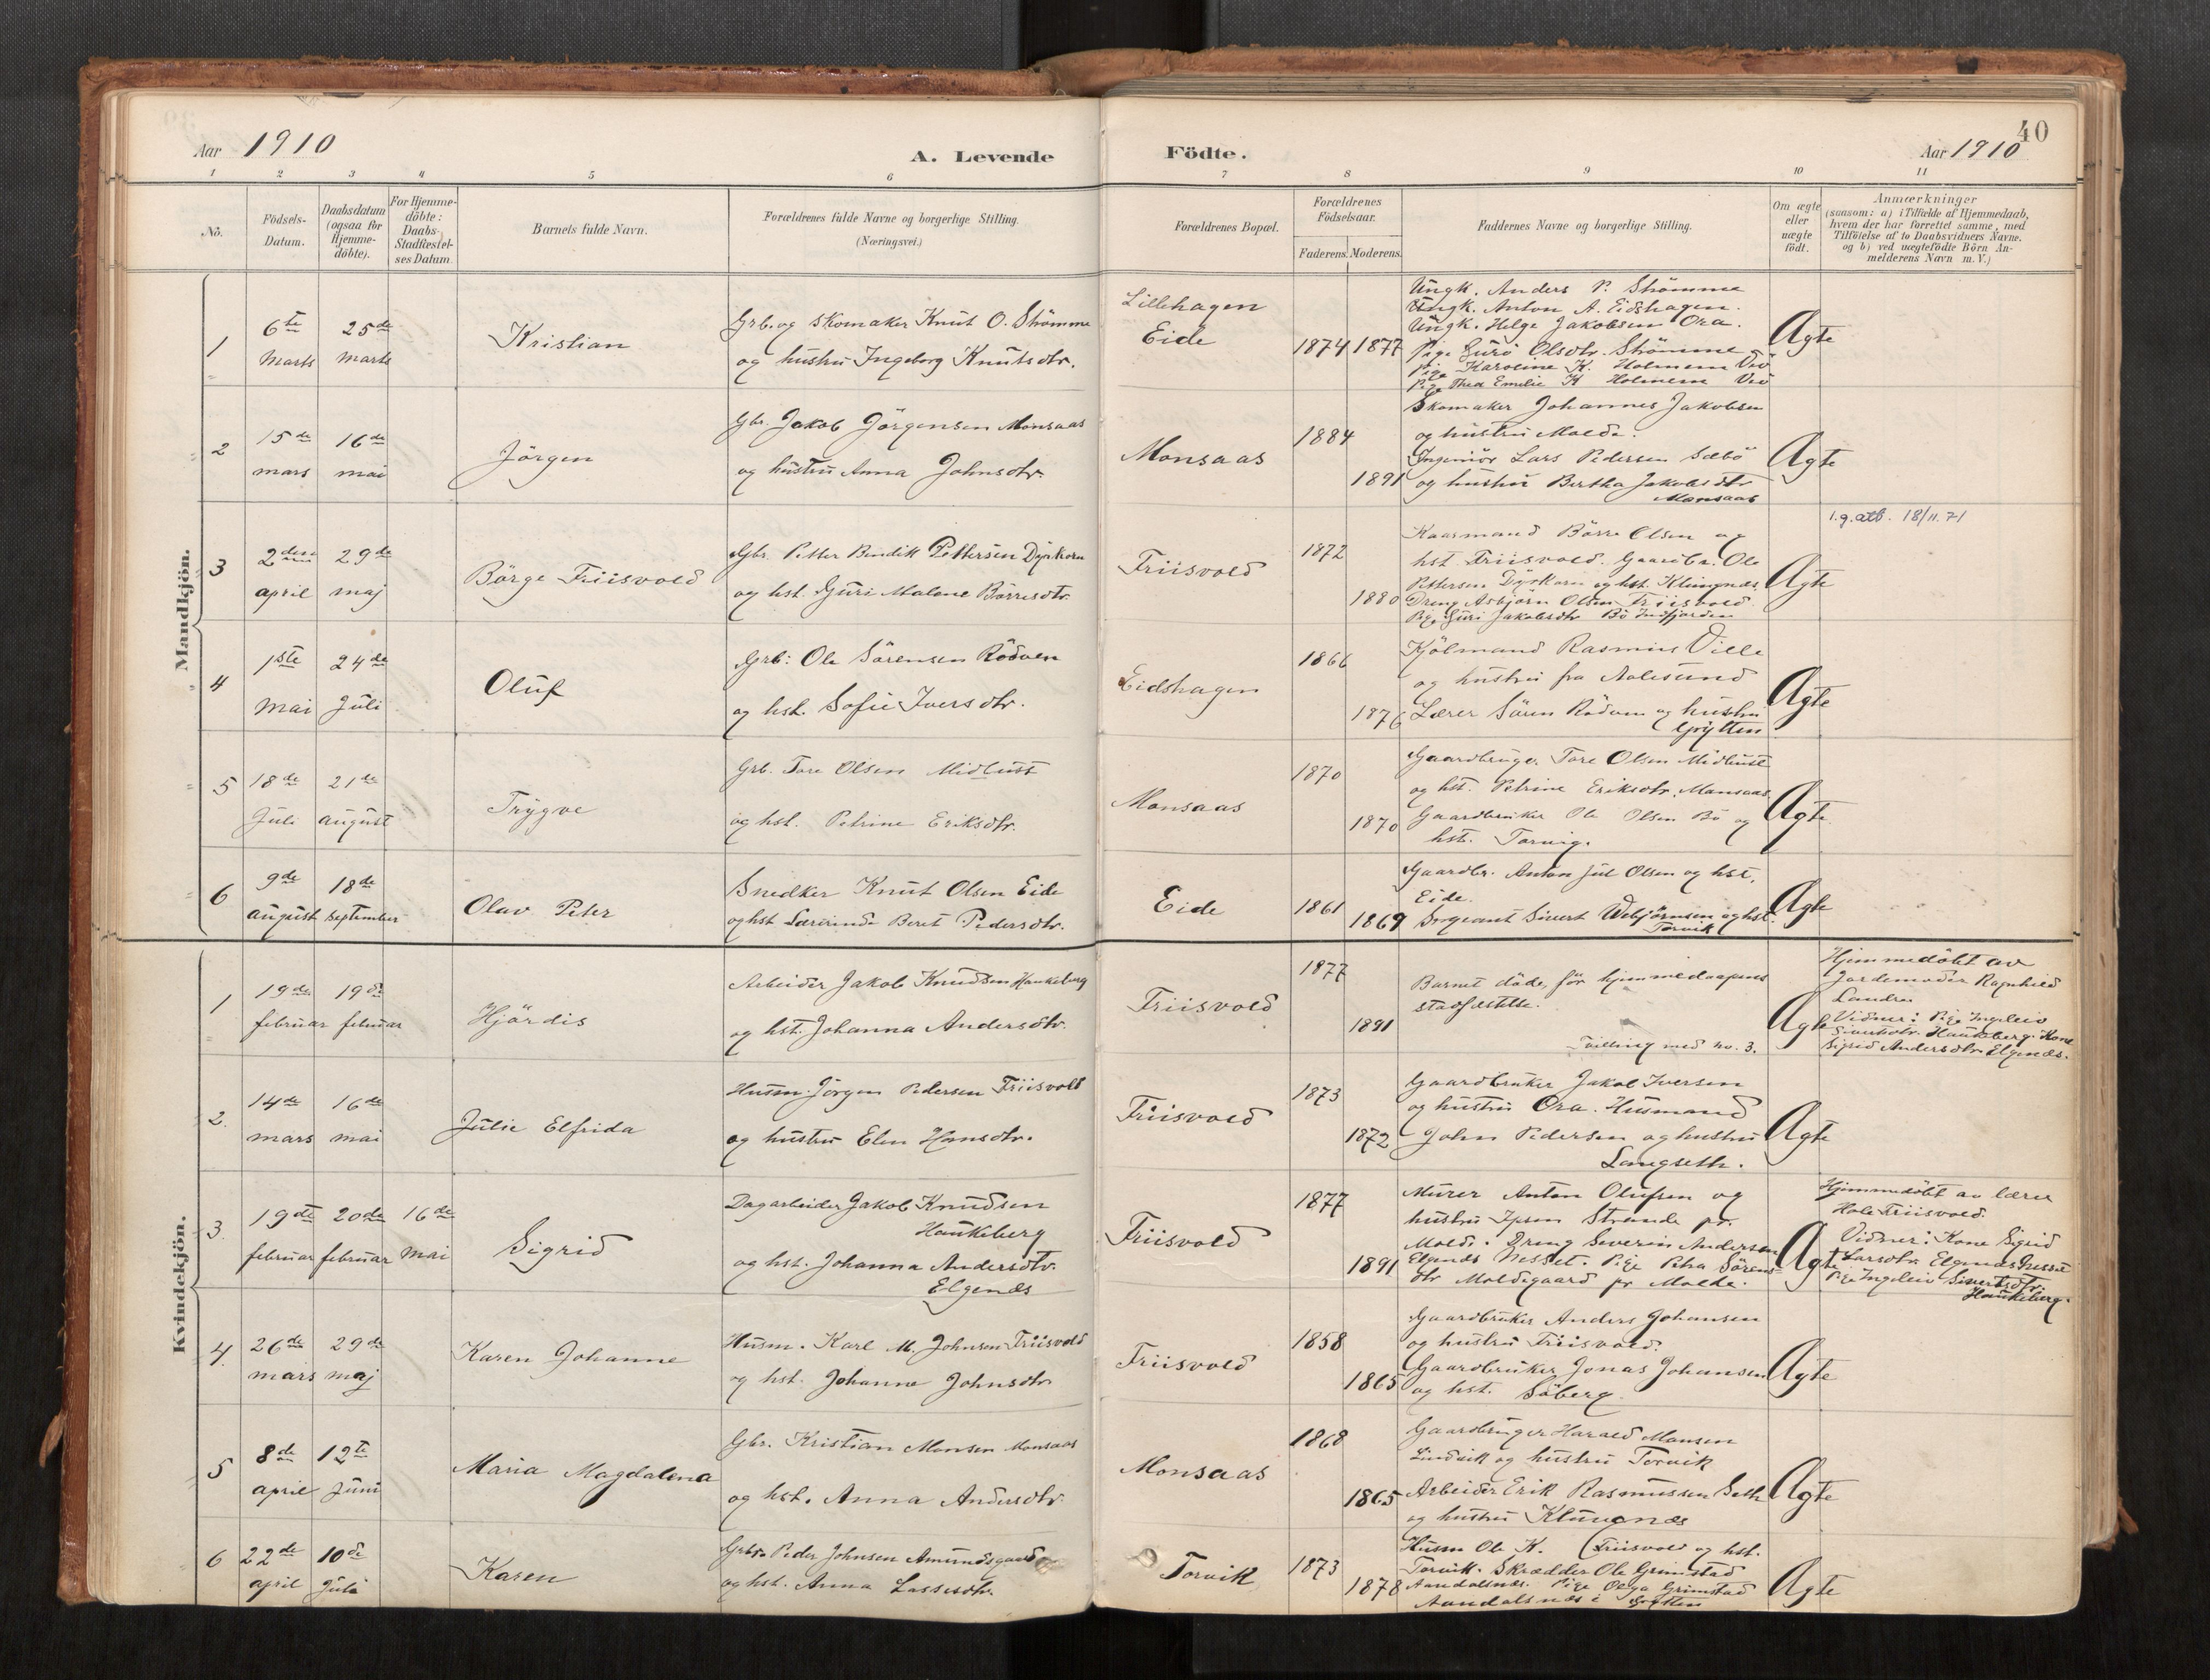 Aar 1910
A. Levende
Födte.
40
Aar 1910
1 2 3 4 5 6 7 8 9 10 11
No.
Födsels-
Datum.
Daabsdatum
(ogsaa for
Hjemme-
döbte).
For Hjemme-
döbte:
Daabs-
Stadfæstel-
ses Datum
Barnets fulde Navn.
Forældrenes fulde Navne og borgerlige Stilling.
(Næringsvei.)
Forældrenes Bopæl.
Forældrenes
Födselsaar.
Faderens. Moderens.
Faddernes Navne og borgerlige Stilling.
Om ægte
eller
uægte
födt.
Anmærkninger
(saasom: a) i Tilfælde af Hjemmedaab,
hvem der har forrettet samme, med
Tilföielse af to Daabsvidners Navne.
og b) ved uægtefödte Börn An-
melderens Navn m. V.)
Mandkjön.
1
6te
Marts
25de
marts
Kristian
Grb. og skomaker Knut O. Strömme
og hustru Ingeborg Knutsdtr.
Lillehagen
Eide
1874 1877
Ungk. Anders P. Strömme
Ungk. Anton A. Eidshagen.
Ungk. Helge Jakobsen Ora.
Pige Guro Olsdtr. Strömme
Pige Karoline K. Holmem Veö
Pige Thea Emelie K Holmem Veö
Ægte
2
15de
mars
16de
mai
Jörgen
Gbr. Jakob Jörgensen Monsaas
og hustru Anna Johnsdtr.
Monsaas
1884
1891
Skomaker Johannes Jakobsen
og hustru Molde.
Ingeniör Lars Pedersen Sæbö
og hustru Bertha Jakobsdtr
Monsaas
Ægte
3
2den
april
29de
maj
Börge Friisvold
Gbr. Petter Bendik Pettersen Dyrkorn
og hst. Guri Malene Börresdtr.
Friisvold
1872
1880
Kaarmand Börre Olsen og
hst. Friisvold. Gaardbr. Ole
Pettersen Dyrkorn og hst. Klungnæs
Dreng Asbjörn Olsen Friisvold
Pige Guri Jakobsdtr Bö Indfjorden
Ægte
l.g.atb. 18/11.71
4
1ste
Mai
24de
Juli
Oluf
Grb: Ole Sörensen Rödven
og hst. Sofie Iversdtr.
Eidshagen
1866
1876
Kjölmand Rasmus Ville
og hustru fra Aalesund
Lærer Sören Rödven og hustru
Grytten
Ægte
5
18de
Juli
21de
august
Trygve
Grb. Tore Olsen Midbust
og hst. Petrine Eriksdtr.
Monsaas
1870
1870
Gaardbruger Tore Olsen Midbust
og hst. Petrine Eriksdtr. Monsaas
Gaardbruker Ole Olsen Bö og
hst. Torvig.
Ægte
6
9de
august
18de
september
Olav Peter
Snedker Knut Olsen Eide
og hst Lærerinde Beret Pedersdtr.
Eide
1861
1869
Gaardbr. Anton Jul Olsen og hst.
Eide.
Sergeant Sivert Webjörnsen og hst.
Torvik
Ægte
Kvindekjön.
1
19de
februar
19de
februar
Hjördis
Arbeider Jakob Knudsen Haukeberg
og hst. Johanna Andersdtr.
Friisvold
1877
1891
Barnet döde, för hjemmedaapens
stadfestelse.
Tvilling med no. 3.
Ægte
Hjemmedöbt av
Jordemoder Ragnhild
Landre
Vidner: Pige Ingeleiv
Sivertsdtr. Haukeberg. Kone
Sigrid Andersdtr. Elgenæs.
2.
14de
mars
16de
mai
Julie Elfrida
Husm. Jörgen Pedersen Friisvold
og hustru Elen Hansdtr.
Friisvold
1873
1872
Gaardbruker Jakob Iversen
og hustru Ora. Husmand
John Pedersen og hustru
Langseth.
Ægte
3.
19de
februar
20de
februar
16de
Mai
Sigrid
Dagarbeider Jakob Knudsen
Haukeberg
og hst. Johanna Andersdtr.
Elgenæs
Friisvold
1877
1891
Murer Anton Olufsen og
hustru Ipsen Strande pr.
Molde. Dreng Severin Andersen
Elgenæs Nesset. Pige Petra Sörens-
dtr Moldegaard pr Molde.
Ægte
Hjemmedöbt av lærer
Hole Friisvold.
Vidner: Kone Sigrid
Larsdtr. Elgenæs Nesset
Pige Ingeleiv Sivertsdtr.
Haukeberg.
4.
26de
mars
29de
maj
Karen Johanne
Husm. Karl M. Johnsen Friisvold
og hst. Johanne Johnsdtr
Friisvold
1858
1865
Gaardbruker Anders Johansen
og hustru Friisvold.
Gaardbruker Jonas Johansen
og hst. Söberg.
Ægte
5
8de
april
12te
Juni
Maria Magdalena
Gbr. Kristian Monsen Monsaas
og hst. Anna Andersdtr.
Monsaas
1868
1865
Gaardbruger Harald Monsen
Lindvik og hustru Torvik
Arbeider Erik Rasmussen Seth
og hustru Klungnæs
Ægte
6
22de
april
10de
Juli
Karen
Grbr. Peder Johnsen Amundsgaard
og hst. Anna Lassesdtr.
Torvik
1873
1878
Husm Ole K. Friisvold og hst.
Torvik. Skrædder Ole Grimstad
Aandalsnæs. Pige Olga Grimstad
Aandalsnæs i Grytten
Ægte